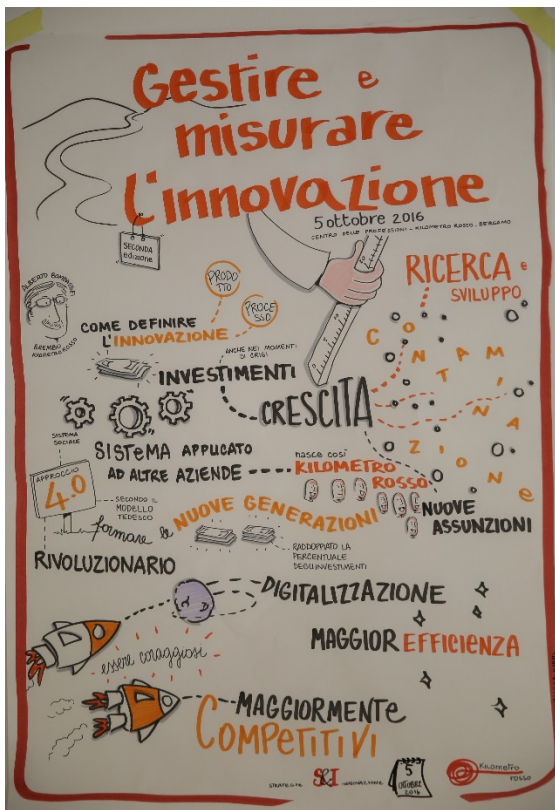 Gestire e
misurare
l'innovazione
5 ottobre 2016
CENTRO DELLE PROFESSIONI - KILOMETRO ROSSO, BERGAMO
SECONDA
edizione
ALBERTO BOMBASSEI
BREMBO
KILOMETRO ROSSO
PRODO
TTO
PROCE
SSO
RICERCA e
SVILUPPO
COME DEFINIRE
L'INNOVAZIONE
ANCHE NEI MOMENTI
DI CRISI
INVESTIMENTI
CRESCITA
CONTAMINAZIONE
SISTEMA
SOCIALE
SISTEMA APPLICATO
AD ALTRE AZIENDE
nasce così
KILOMETRO
ROSSO
APPROCCIO
4.0
SECONDO IL
MODELLO
TEDESCO
formare le
NUOVE GENERAZIONI
NUOVE
ASSUNZIONI
RADDOPPIATO LA
PERCENTUALE
DEGLI INVESTIMENTI
RIVOLUZIONARIO
A D
DIGITALIZZAZIONE
MAGGIOR EFFICIENZA
essere coraggiosi
MAGGIORMENTE
COMPETITIVI
STRATEGIE
S&I
INNOVAZIONE
5
OTTOBRE
2016
Kilometro
rosso